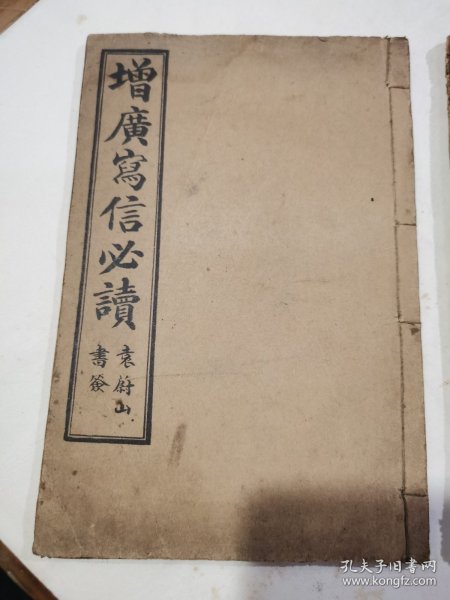 增廣寫信必讀
袁蔚山
書簽
孔夫子旧书网
www.kongfz.com